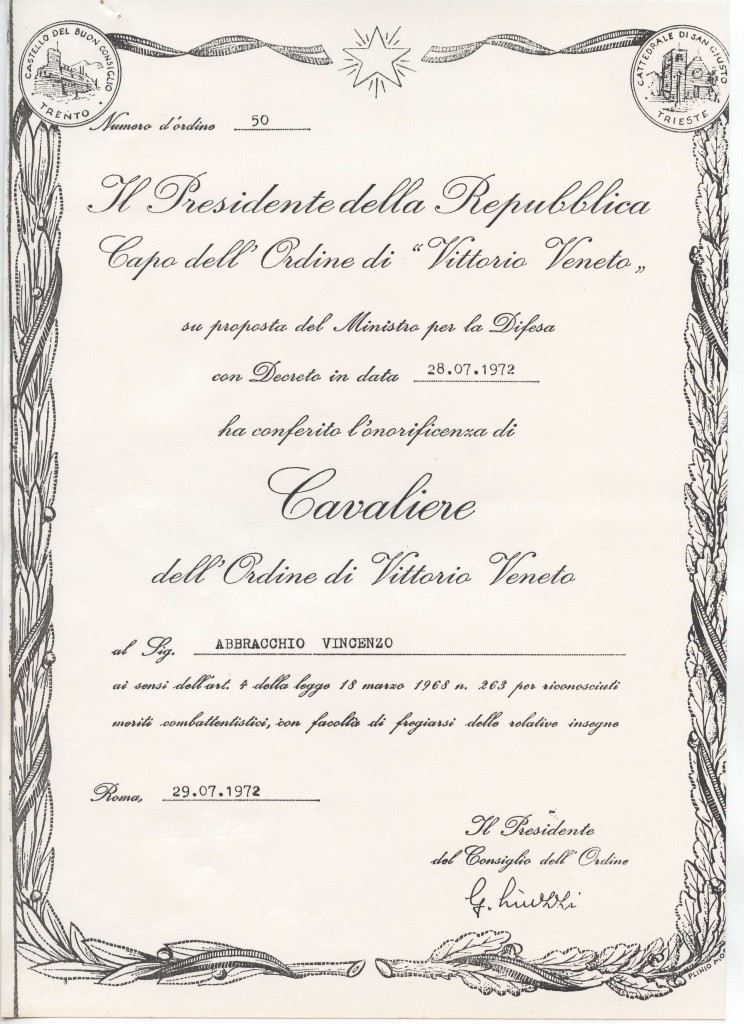 CASTELLO DEL BUON CONSIGLIO
TRENTO
CATTEDRALE DI SAN GIUSTO
TRIESTE
Numero d'ordine 50
Il Presidente della Repubblica
Capo dell'Ordine di “Vittorio Veneto„
su proposta del Ministro per la Difesa
con Decreto in data 28.07.1972
ha conferito l'onorificenza di
Cavaliere
dell'Ordine di Vittorio Veneto
al Sig. ABBRACCHIO VINCENZO
ai sensi dell'art. 4 della legge 18 marzo 1968 n. 263 per riconosciuti
meriti combattentistici, con facoltà di fregiarsi delle relative insegne
Roma, 29.07.1972
Il Presidente
del Consiglio dell'Ordine
PLINIO